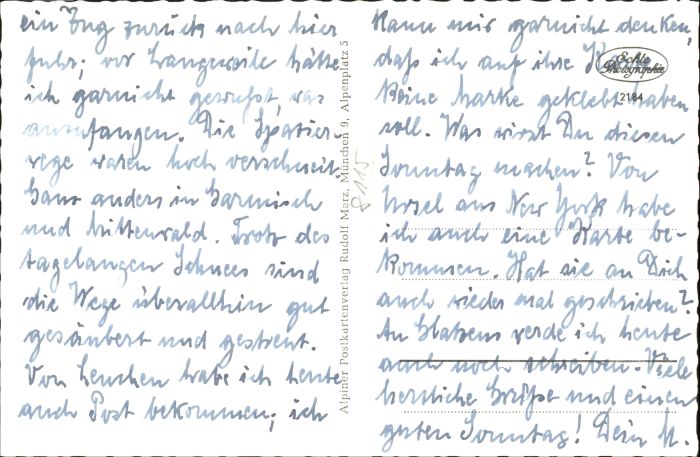 ein Zug zurück nach hier
fuhr; vor Langweile hätte
ich garnicht gewußt, was
anzufangen. Die Spazier-
wege waren hoch verschneit.
Ganz anders in Garmisch
und Mittenwald. Trotz des
tagelangen Schnees sind
die Wege überallhin gut
gesäubert und gestreut.
Von Lenchen habe ich heute
auch Post bekommen; ich
Alpiner Postkartenverlag Rudolf Merz, München 9, Alpenplatz 5
8115
kann mir garnicht denken,
daß ich auf ihre
Echte Photographie
keine Marke geklebt haben
2184
soll. Was wirst Du diesen
Sonntag machen? Von
Ursel aus New York habe
ich auch eine Karte be-
kommen. Hat sie an Dich
auch wieder mal geschrieben?
An werde ich heute
auch noch schreiben. Viele
herzliche Grüße und einen
guten Sonntag! Dein M.